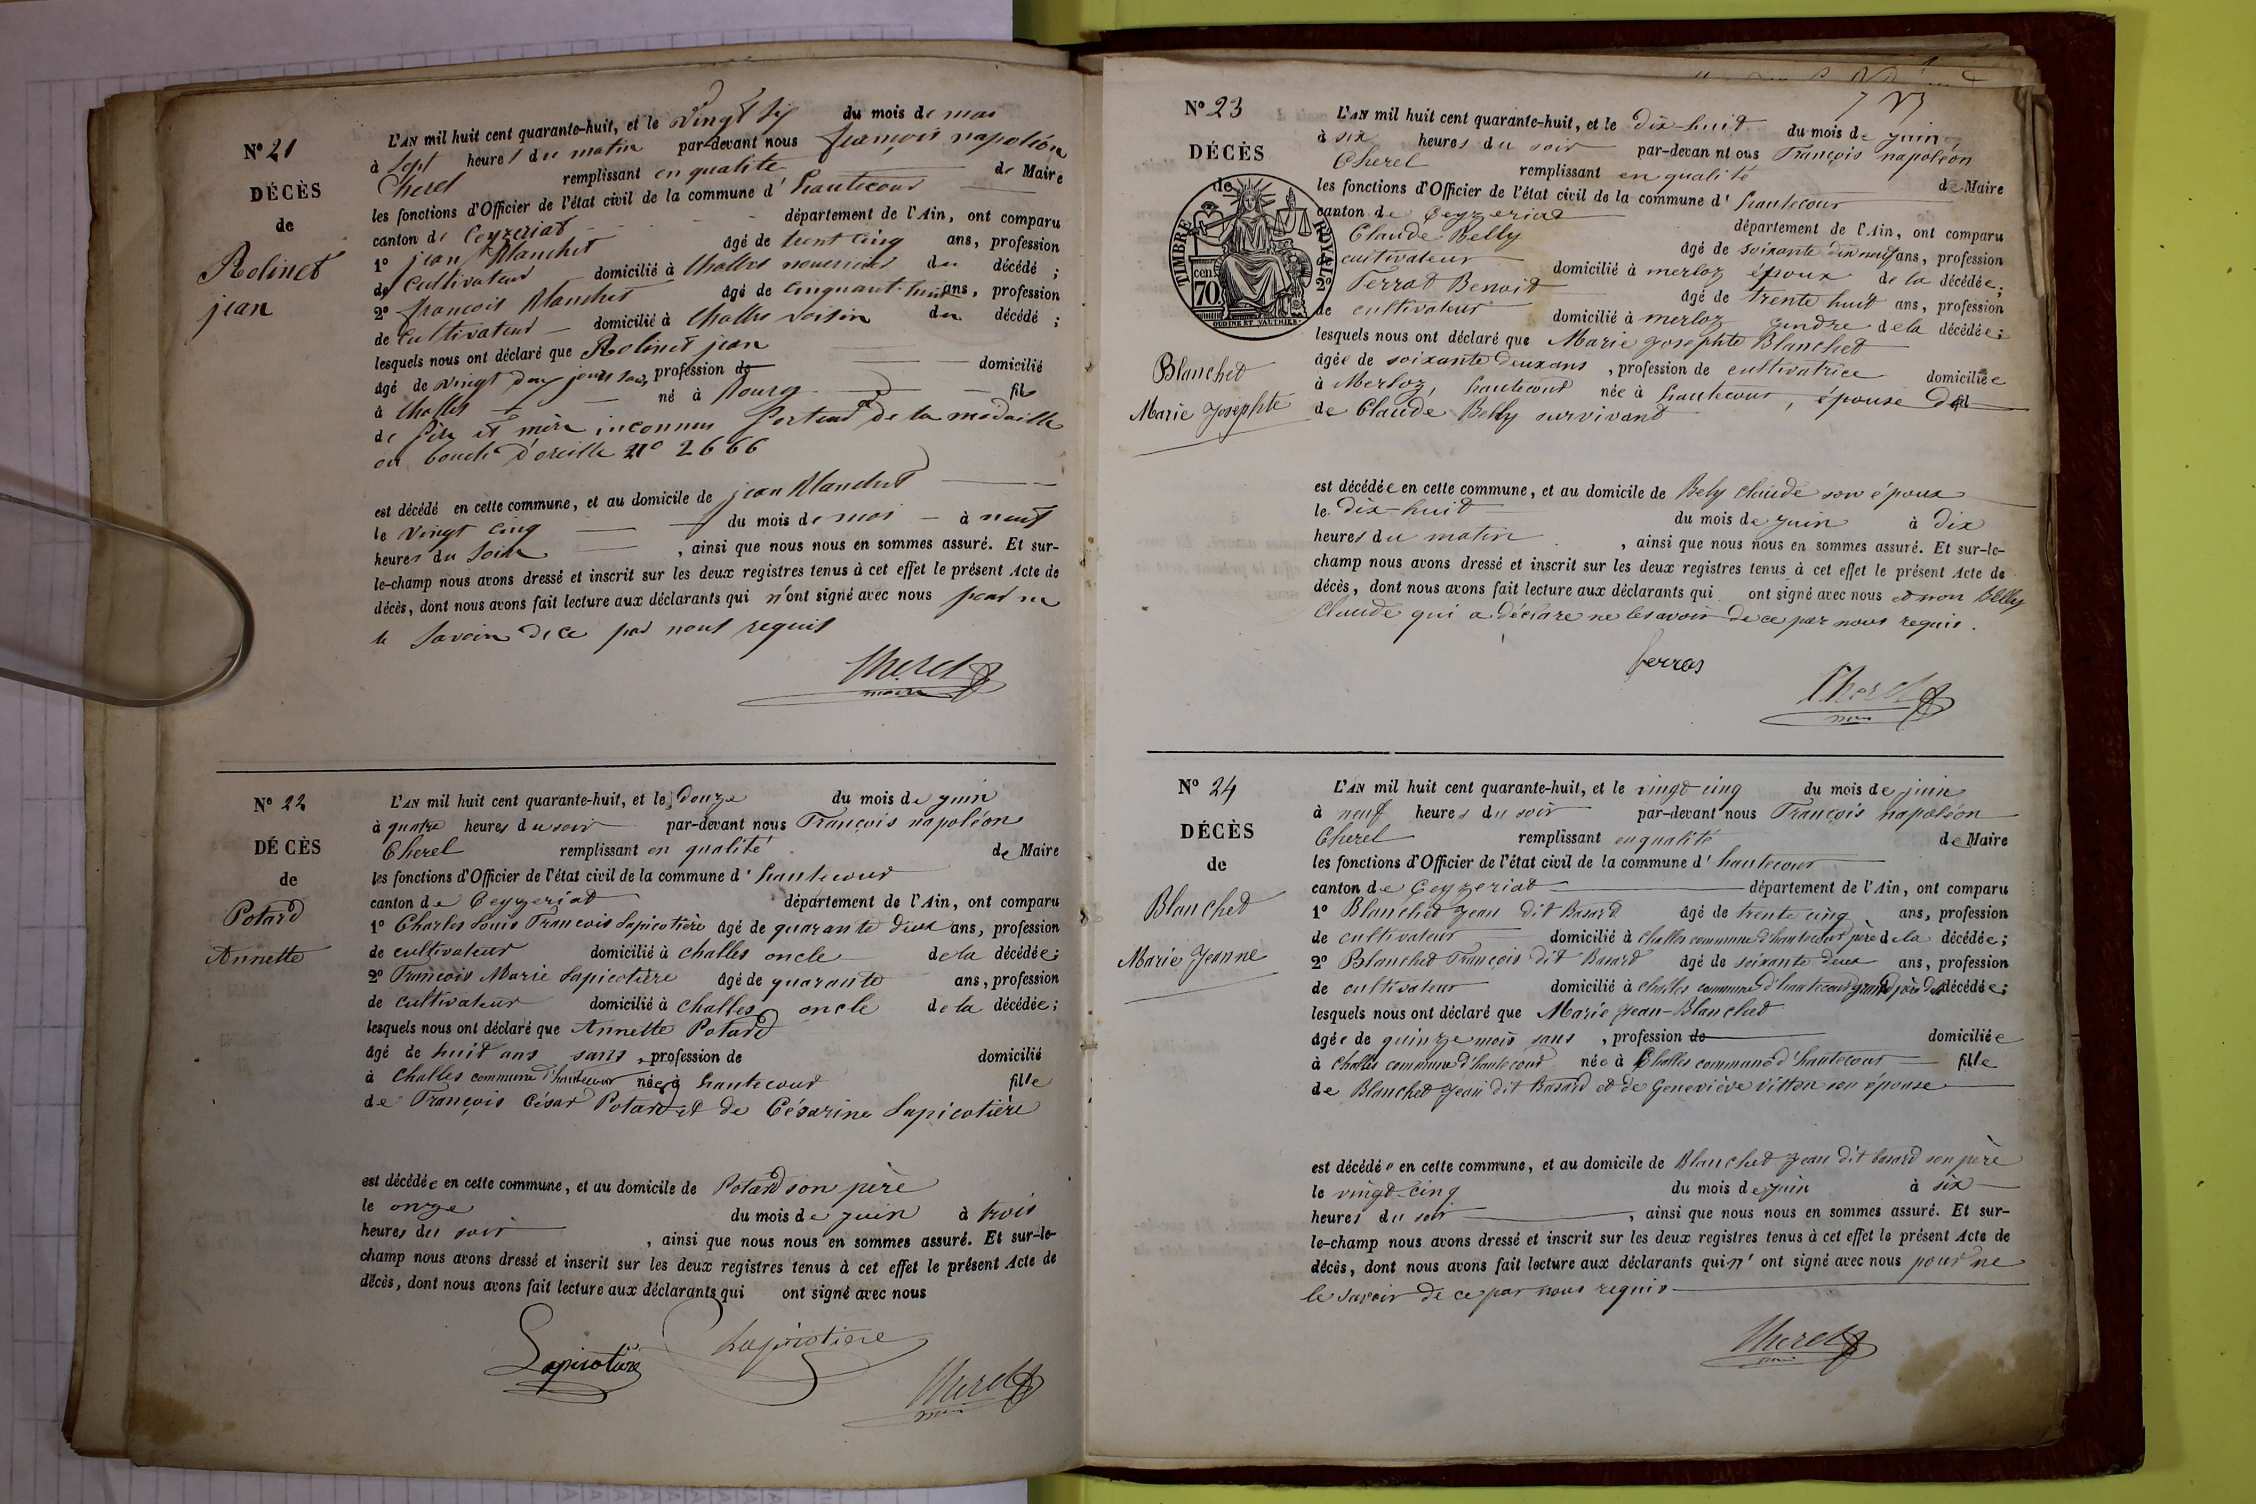 N° 21
DÉCÈS
de
Rolinet
jean
L'AN mil huit cent quarante-huit, et le vingt six du mois de mai
à sept heures du matin par-devant nous françois napoléon
Cherel remplissant en qualité de Maire
les fonctions d'Officier de l'état civil de la commune d'hautecour
canton de Ceyzeriat département de l'Ain, ont comparu
1° jean Blanchet âgé de trent cinq ans, profession
de cultivateur domicilié à Challes nourricier du décédé ;
2° françois Blanchet âgé de cinquant huit ans, profession
de cultivateur domicilié à Challes voisin du décédé ;
lesquels nous ont déclaré que Rolinet jean
âgé de vingt deux jours sans profession de domicilié
à Challes né à Bourg fils
de père et mère inconnus portant de la médaille
ou boucle d'oreille n° 2666
est décédé en cette commune, et au domicile de jean Blanchet
le vingt cinq du mois de mai à neuf
heures du soir, ainsi que nous nous en sommes assuré. Et sur-
le-champ nous avons dressé et inscrit sur les deux registres tenus à cet effet le présent Acte de
décès, dont nous avons fait lecture aux déclarants qui n'ont signé avec nous pour ne
le savoir de ce par nous requis
Cherel
maire
N° 22
DÉCÈS
de
Potard
Annette
L'AN mil huit cent quarante-huit, et le douze du mois de juin
à quatre heures du soir par-devant nous François napoléon
Cherel remplissant en qualité de Maire
les fonctions d'Officier de l'état civil de la commune d'hautecour
canton de Ceyzeriat département de l'Ain, ont comparu
1° Charles Louis François Lapicotière âgé de quarante deux ans, profession
de cultivateur domicilié à challes oncle de la décédée ;
2° François Marie Lapicotière âgé de quarante ans, profession
de cultivateur domicilié à challes oncle de la décédée ;
lesquels nous ont déclaré que Annette Potard
âgé de huit ans sans, profession de domicilié
à Challes commune d'hautecour née à hautecour fille
de François César Potard et de Césarine Lapicotière
est décédée en cette commune, et au domicile de Potard son père
le onze du mois de juin à trois
heures du soir, ainsi que nous nous en sommes assuré. Et sur-le-
champ nous avons dressé et inscrit sur les deux registres tenus à cet effet le présent Acte de
décès, dont nous avons fait lecture aux déclarants qui ont signé avec nous
Lapicotière Lapicotiere
Cherel
maire
N° 23
DÉCÈS
de
TIMBRE ROYAL
70
OUDINÉ ET VAUTHIER
Blanchet
Marie Josephte
L'AN mil huit cent quarante-huit, et le dix-huit du mois de juin
à six heures du soir par-devan nt ous François napoléon
Cherel remplissant en qualité de Maire
les fonctions d'Officier de l'état civil de la commune d'hautecour
canton de Ceyzeriat département de l'Ain, ont comparu
Claude Belly âgé de soixante dix neuf ans, profession
cultivateur domicilié à merloz époux de la décédée ;
Ferrat Benoit âgé de trente huit ans, profession
de cultivateur domicilié à merloz gendre de la décédée ;
lesquels nous ont déclaré que Marie Josephte Blanchet
âgée de soixante deux ans, profession de cultivatrice domiciliée
à Merloz, hautecour née à hautecour, épouse
de Claude Belly survivant
est décédée en cette commune, et au domicile de Bely claude son époux
le dix-huit du mois de juin à dix
heures du matin, ainsi que nous nous en sommes assuré. Et sur-le-
champ nous avons dressé et inscrit sur les deux registres tenus à cet effet le présent Acte de
décès, dont nous avons fait lecture aux déclarants qui ont signé avec nous et non Belly
Claude qui a déclaré ne le savoir de ce par nous requis.
ferras
Cherel
N° 24
DÉCÈS
de
Blanchet
Marie Jeanne
L'AN mil huit cent quarante-huit, et le vingt cinq du mois de juin
à neuf heures du soir par-devant nous François napoléon
Cherel remplissant en qualité de Maire
les fonctions d'Officier de l'état civil de la commune d'hautecour
canton de Ceyzeriat département de l'Ain, ont comparu
1° Blanchet Jean dit Basard âgé de trente cinq ans, profession
de cultivateur domicilié à challes commune d'hautecour père de la décédée ;
2° Blanchet François dit Basard âgé de soixante deux ans, profession
de cultivateur domicilié à challes commune d'hautecour grand père de la décédée ;
lesquels nous ont déclaré que Marie Jean-Blanchet
âgée de quinze mois sans, profession de domiciliée
à challes commune d'hautecour née à Challes commune d'hautecour fille
de Blanchet Jean dit Basard et de Geneviève Vitton son épouse
est décédée en cette commune, et au domicile de Blanchet Jean dit basard son père
le vingt-cinq du mois de juin à six
heures du soir, ainsi que nous nous en sommes assuré. Et sur-
le-champ nous avons dressé et inscrit sur les deux registres tenus à cet effet le présent Acte de
décès, dont nous avons fait lecture aux déclarants qui n'ont signé avec nous pour ne
le savoir de ce par nous requis
Cherel